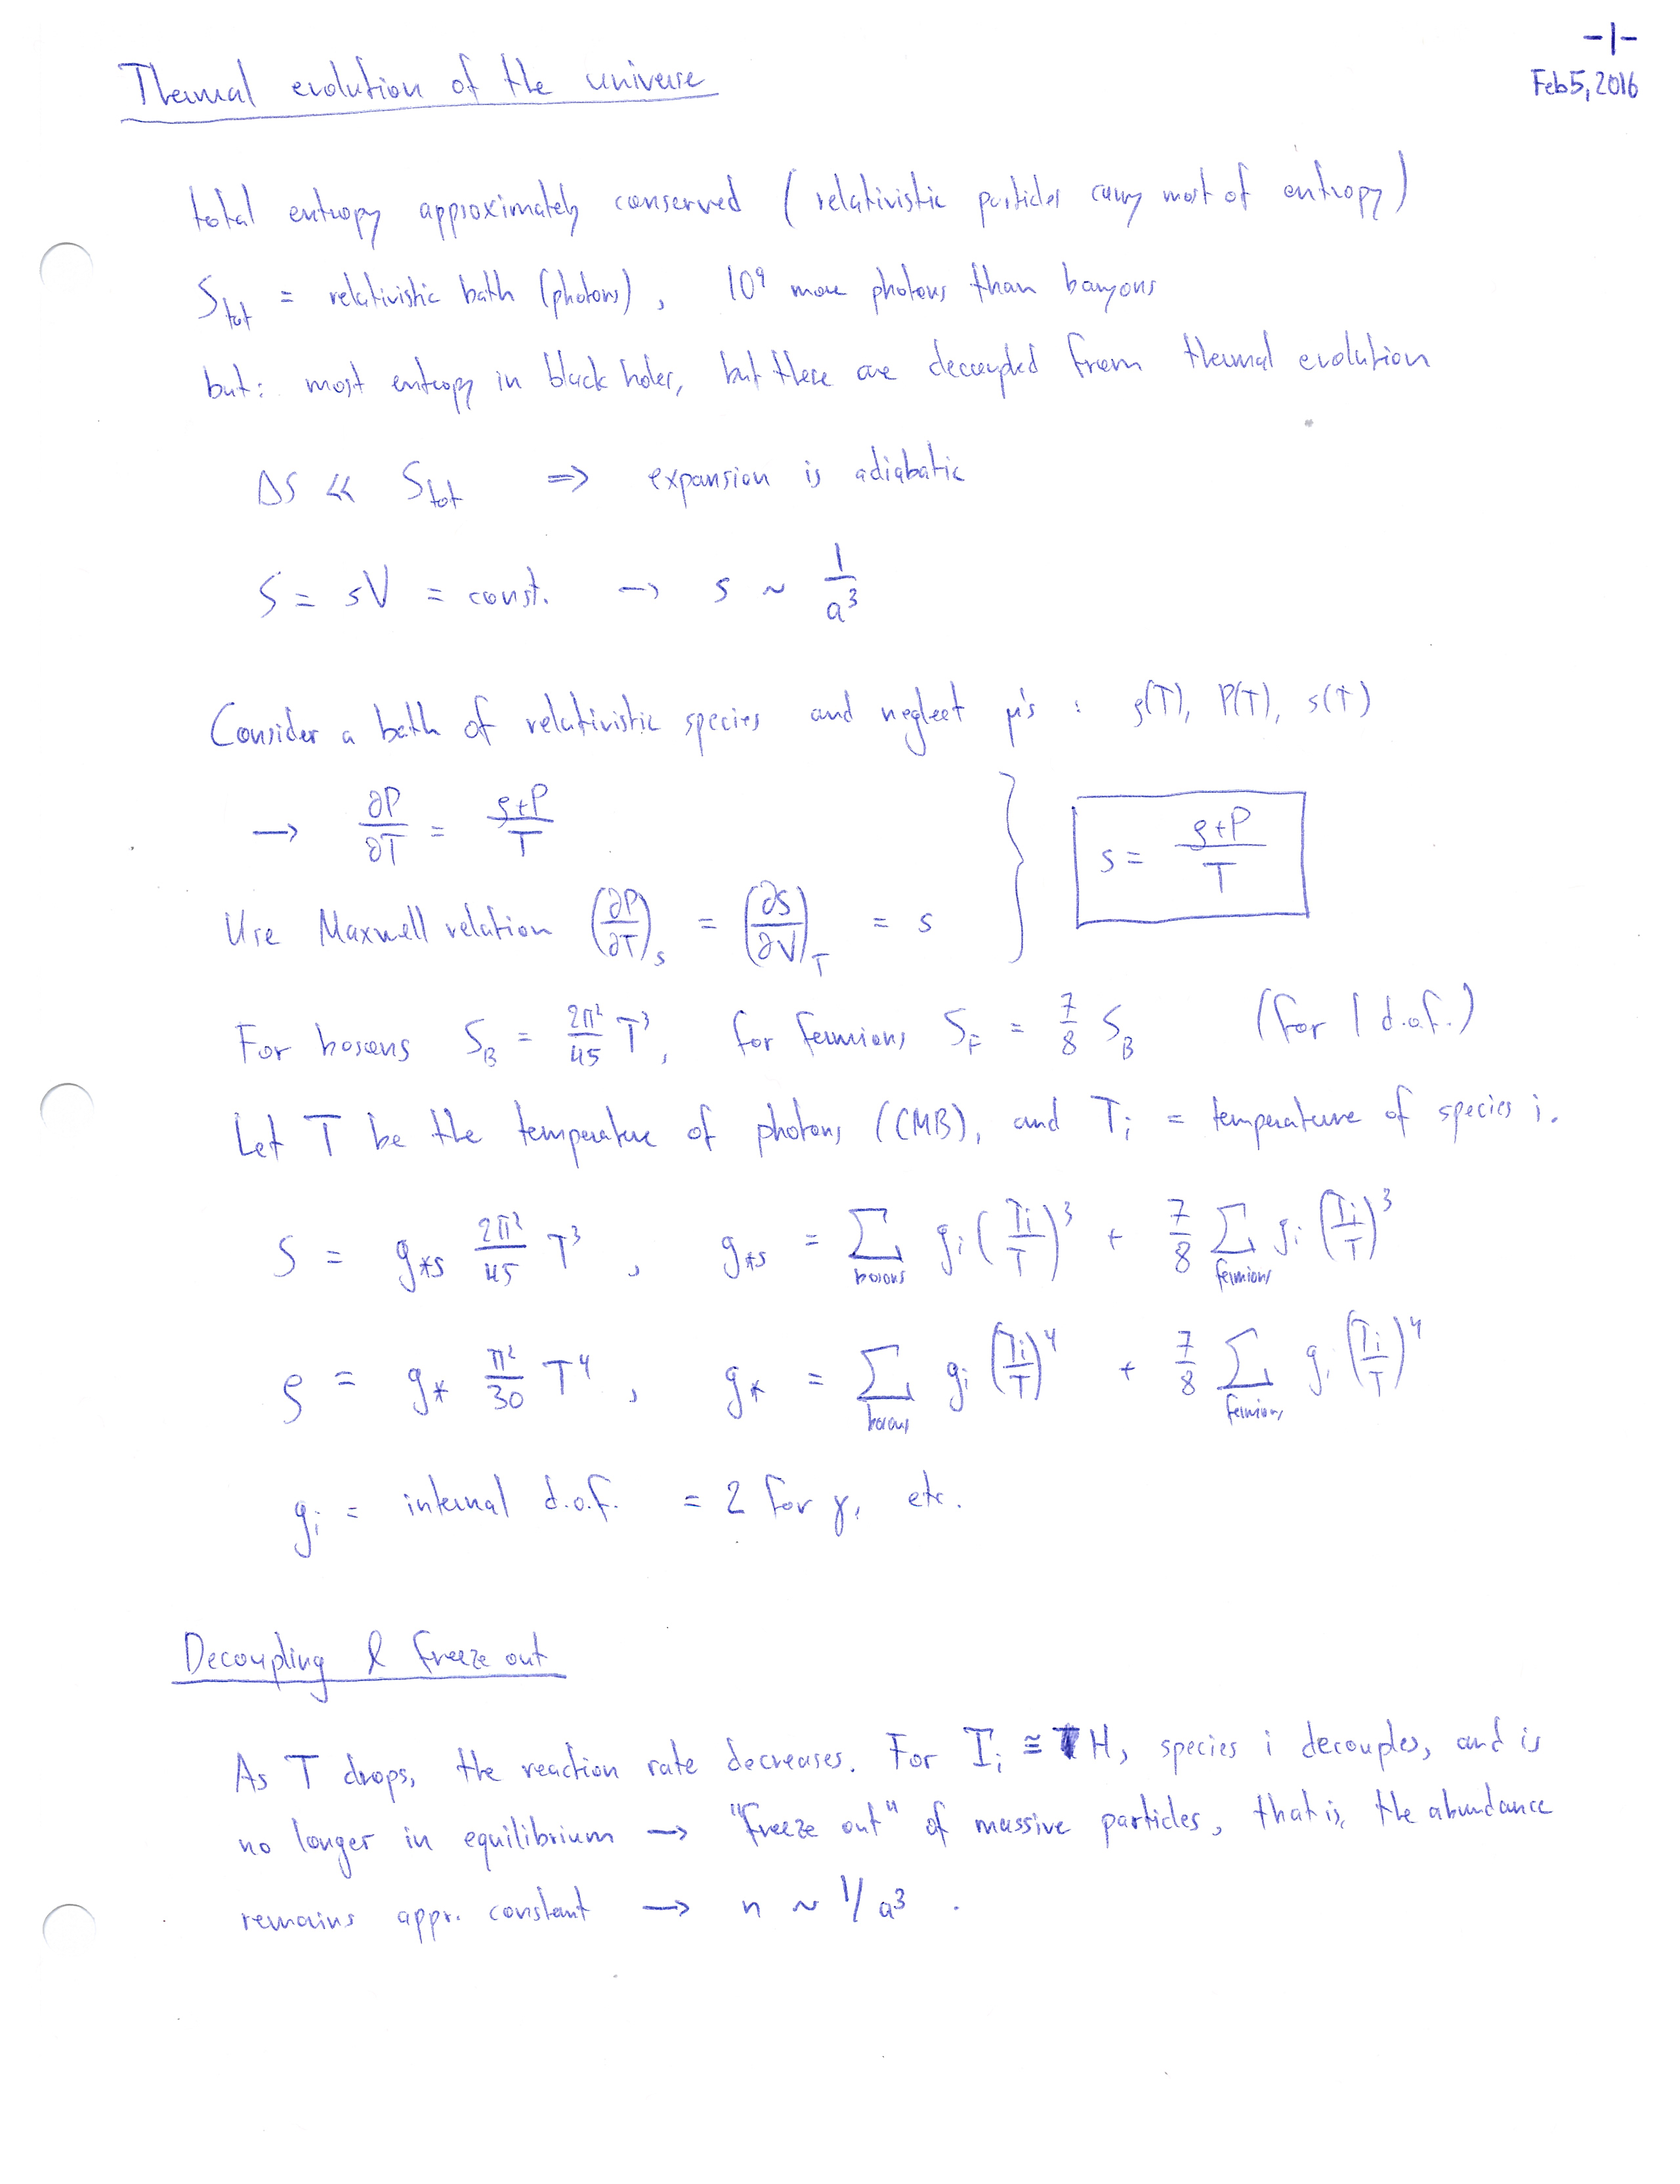 -1-
Feb 5, 2016
Thermal evolution of the universe
total entropy approximately conserved (relativistic particles carry most of entropy)
S_tot = relativistic bath (photons), 10⁹ more photons than baryons
but: most entropy in black holes, but these are decoupled from thermal evolution
ΔS << S_tot => expansion is adiabatic
S = sV = const. → s ~ 1/a³
Consider a bath of relativistic species and neglect μ's : ρ(T), P(T), s(T)
→ ∂P/∂T = (ρ+P)/T } s = (ρ+P)/T
Use Maxwell relation (∂P/∂T)_S = (∂S/∂V)_T = s
For bosons S_B = 2π²/45 T³, for fermions S_F = 7/8 S_B (for 1 d.o.f.)
Let T be the temperature of photons (CMB), and T_i = temperature of species i.
S = g_*S 2π²/45 T³, g_*S = Σ_bosons g_i (T_i/T)³ + 7/8 Σ_fermions g_i (T_i/T)³
ρ = g_* π²/30 T⁴, g_* = Σ_bosons g_i (T_i/T)⁴ + 7/8 Σ_fermions g_i (T_i/T)⁴
g_i = internal d.o.f. = 2 for γ, etc.
Decoupling & freeze out
As T drops, the reaction rate decreases. For Γ_i ≅ H, species i decouples, and is
no longer in equilibrium → "freeze out" of massive particles, that is, the abundance
remains appr. constant → n ~ 1/a³ .